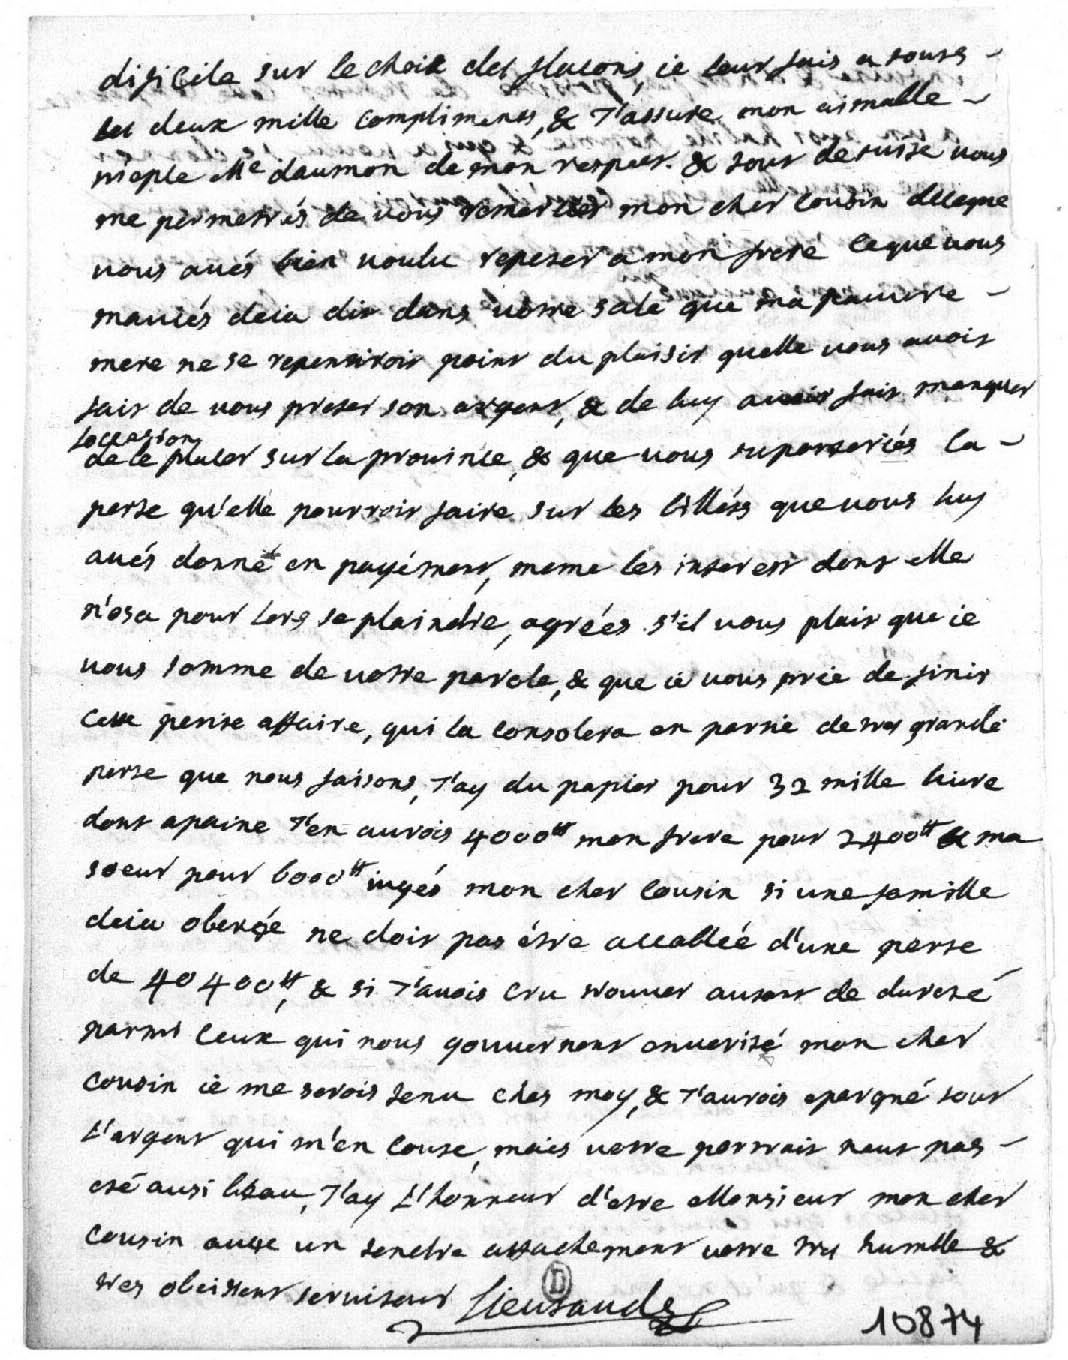 dificile sur le choix des flacons, ie leur fais a touts
les deux mille compliments, & J'assure mon aimable
niepse Me daumon de mon respect. & tout de suitte vous
me permetrés de vous remercier mon cher Cousin de ce que
vous avés bien voulu repeter a mon frere ce que vous
maviés deia dit dans votre sale que ma pauvre
mere ne se repentiroit point du plaisir quelle vous avoit
fait de vous preter son argent, & de luy avoir fait manquer
loccasion
de le placer sur la province, & que vous suporteriés la
perte qu'elle pourroit faire sur les billéts que vous luy
avés donné en payément, meme les interest dont elle
n'osa pour lors se plaindre, agréés s'il vous plait que ie
vous somme de votre parole, & que ie vous prie de finir
cette petite affaire, qui la consolera en partie de tres grande
perte que nous faisons, J'ay du papier pour 32 mille livre
dont apaine J'en aurois 4000tt mon frere pour 2400tt & ma
soeur pour 6000tt iugés mon cher Cousin si une famille
deia oberée ne doit pas étre accablée d'une perte
de 40400tt, & si J'avois cru trouver autant de dureté
parmi ceux qui nous gouvernent en verité mon cher
Cousin ie me serois tenu ches moy, & J'aurois epargné tout
L'argent qui m'en coute, mais votre portrait neut pas
eté ausi beau, J'ay L'honneur d'etre Monsieur mon cher
Cousin avec un tendre attachement votre tres humble &
tres obeissant serviteur Lieutauds
D
10874